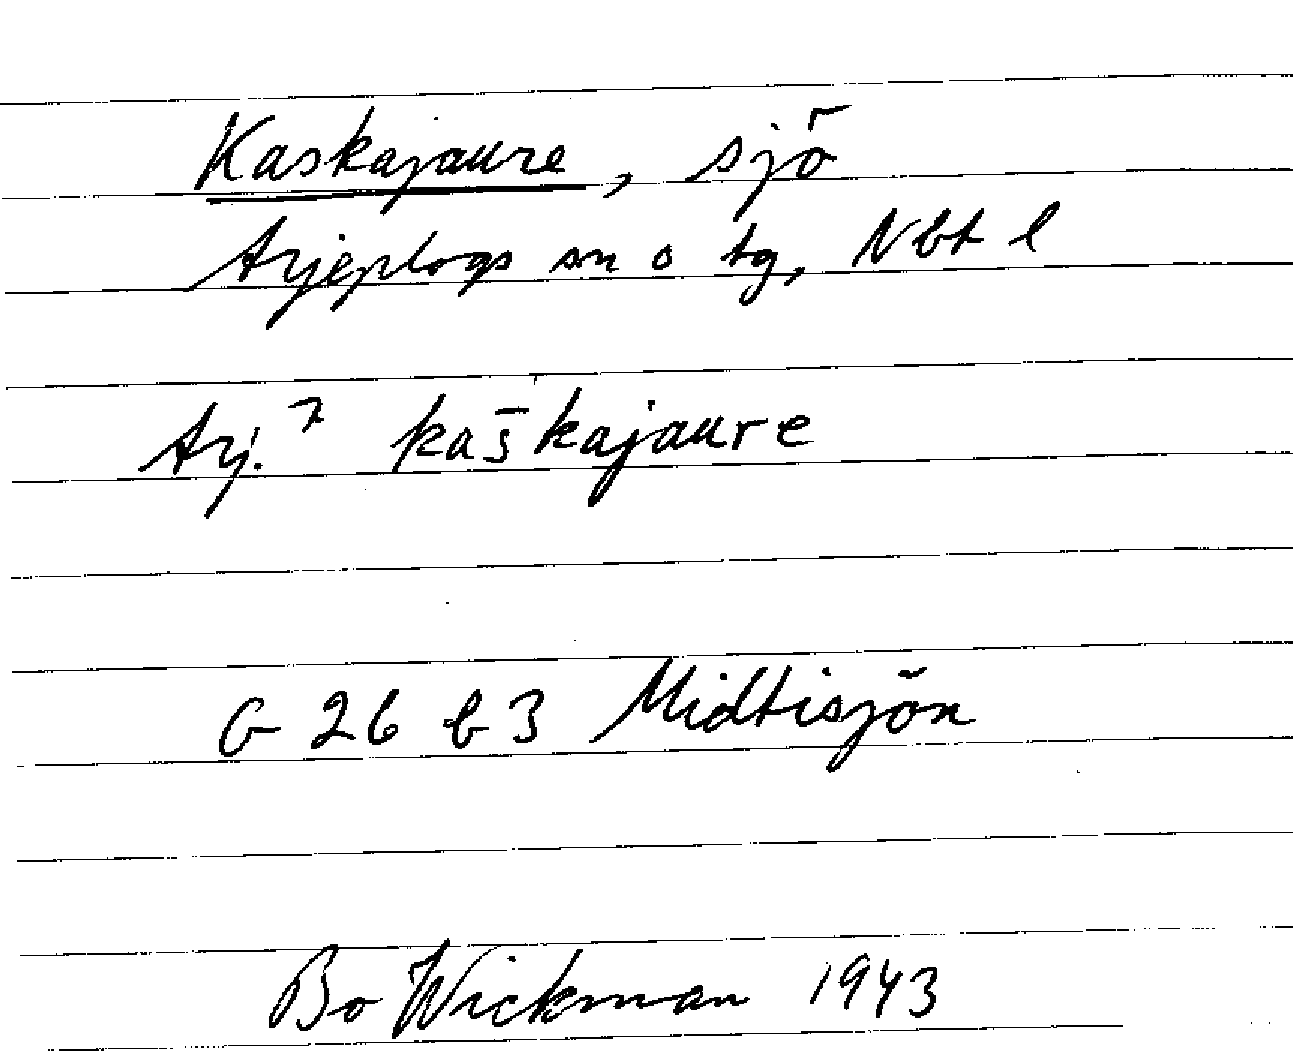 Kaskajaure, sjö
Arjeplogs sn o tg, Nbt l
Arj.⁷ kas̄kajaure
G 26 b 3 Midtisjön
Bo Wickman 1943